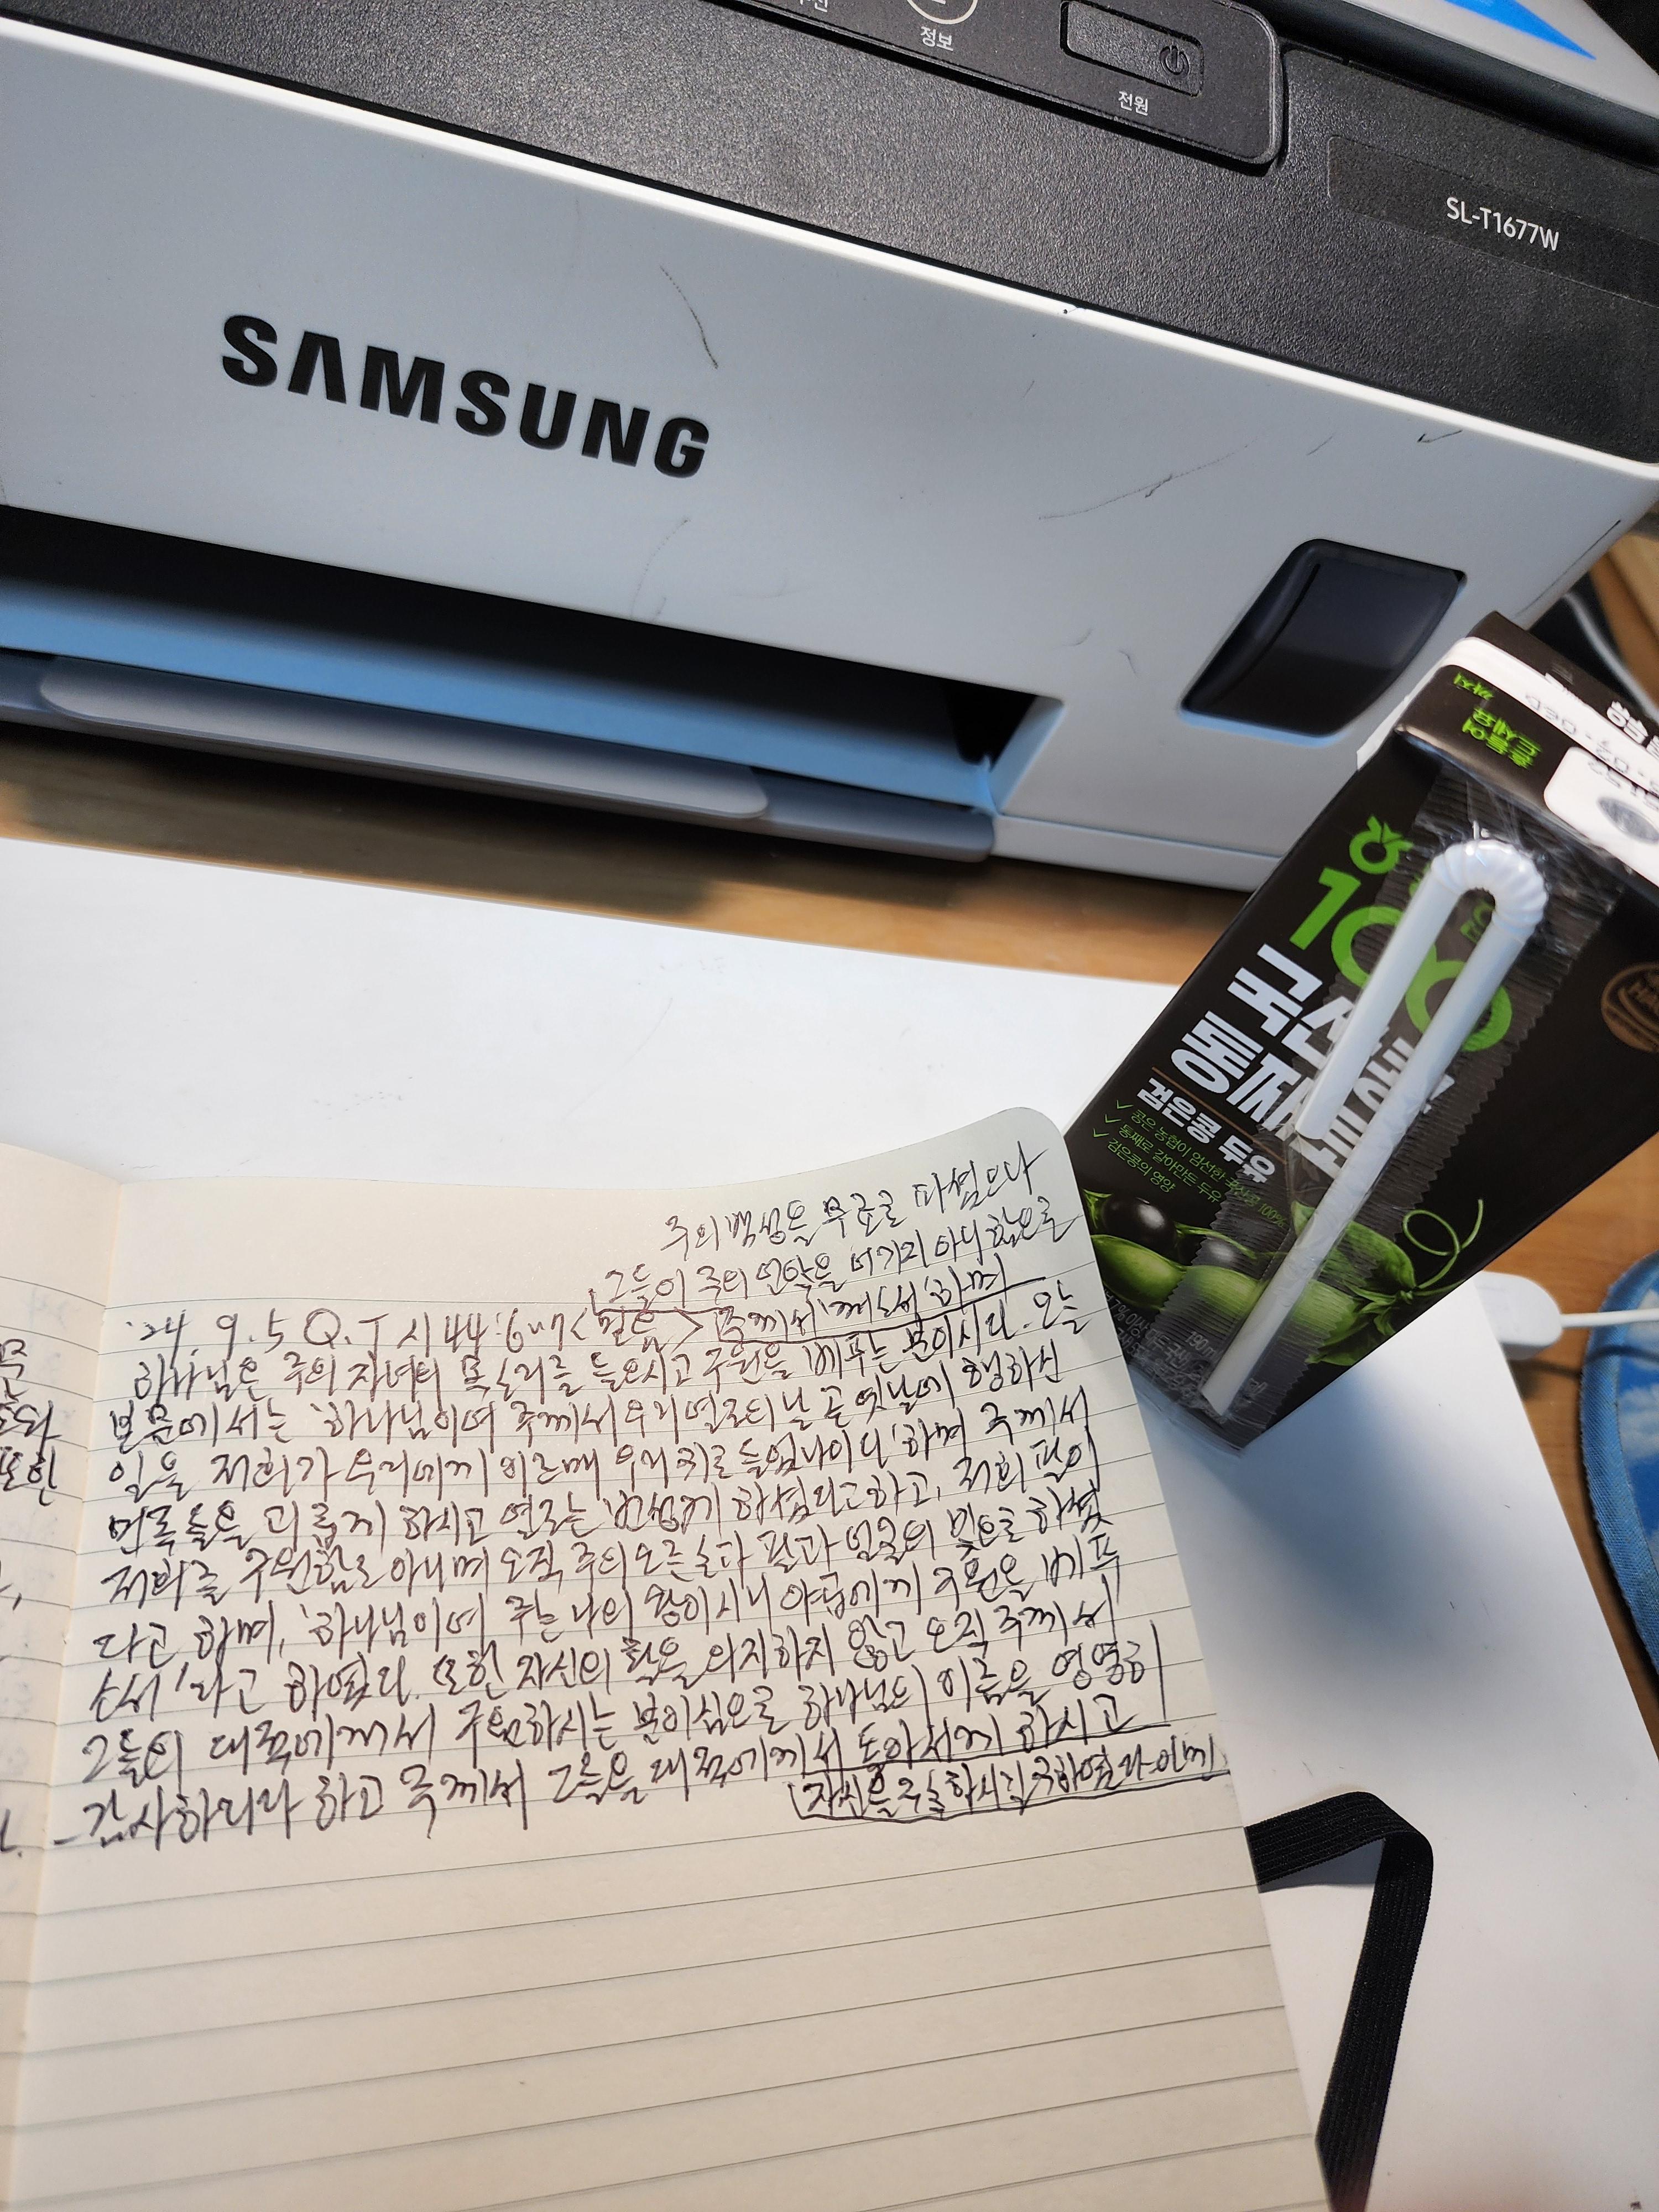 정보
전원
SL-T1677W
SAMSUNG
흔들어
드세요
100
국산
통째
검은콩 두유
콩은 농협이 엄선한 국산콩 100%
통째로 갈아만든 두유
검은콩의 영양
190
주의 백성을 무료로 파셨으나
그들이 주의 언약을 어기지 아니함으로
'24. 9. 5 Q.T 시44:
주께서 '깨소서' 하며
하나님은 주의 자녀의 목소리를 들으시고 구원을 베푸는 분이시다. 오늘
본문에서는 '하나님이여 주께서 우리 열조의 날 곧 옛날에 행하신
일을 저희가 우리에게 이르매 우리 귀로 들었나이다' 하며 주께서
민족들을 괴롭게 하시고 열조는 번성케 하셨다고 하고, 저희 팔이
저희를 구원함도 아니며 오직 주의 오른손과 팔과 얼굴의 빛으로 하셨
다고 하며, '하나님이여 주는 나의 왕이시니 야곱에게 구원을 베푸
소서' 라고 하였다. 또한 자신의 활을 의지하지 않고 오직 주께서
그들의 대적에게서 구원하시는 분이심으로 하나님의 이름을 영영히
감사하리라 하고 주께서 그들을 대적에게서 돌아서게 하시고